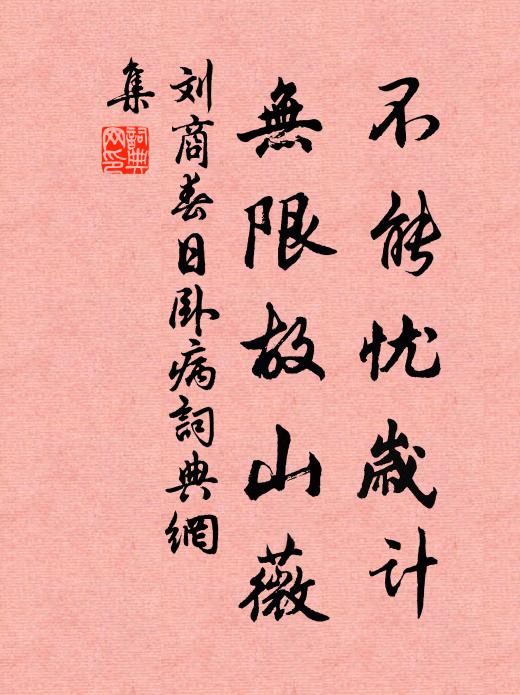 不能忧歲计
無限故山薇
刘商春日卧病詞典網
集
詞典
网印